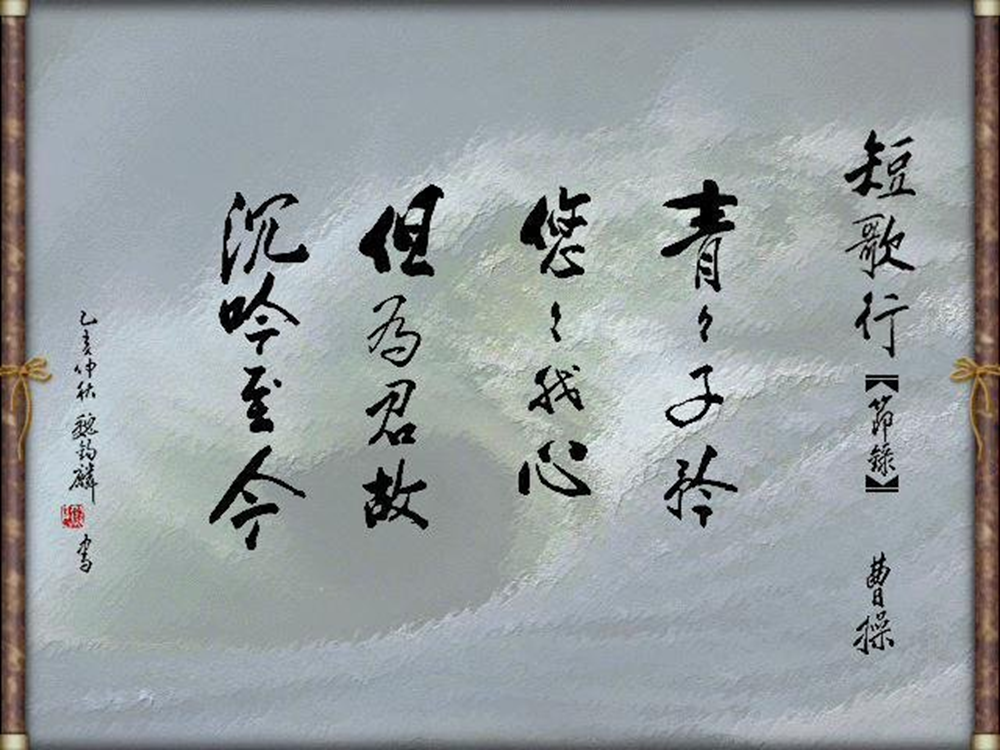 短歌行【節錄】 曹操
青々子衿
您々我心
但为君故
沉吟至今
乙亥仲秋 魏鈞麟 書